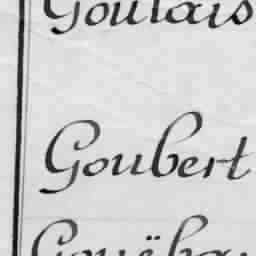 Goulais
Goubert